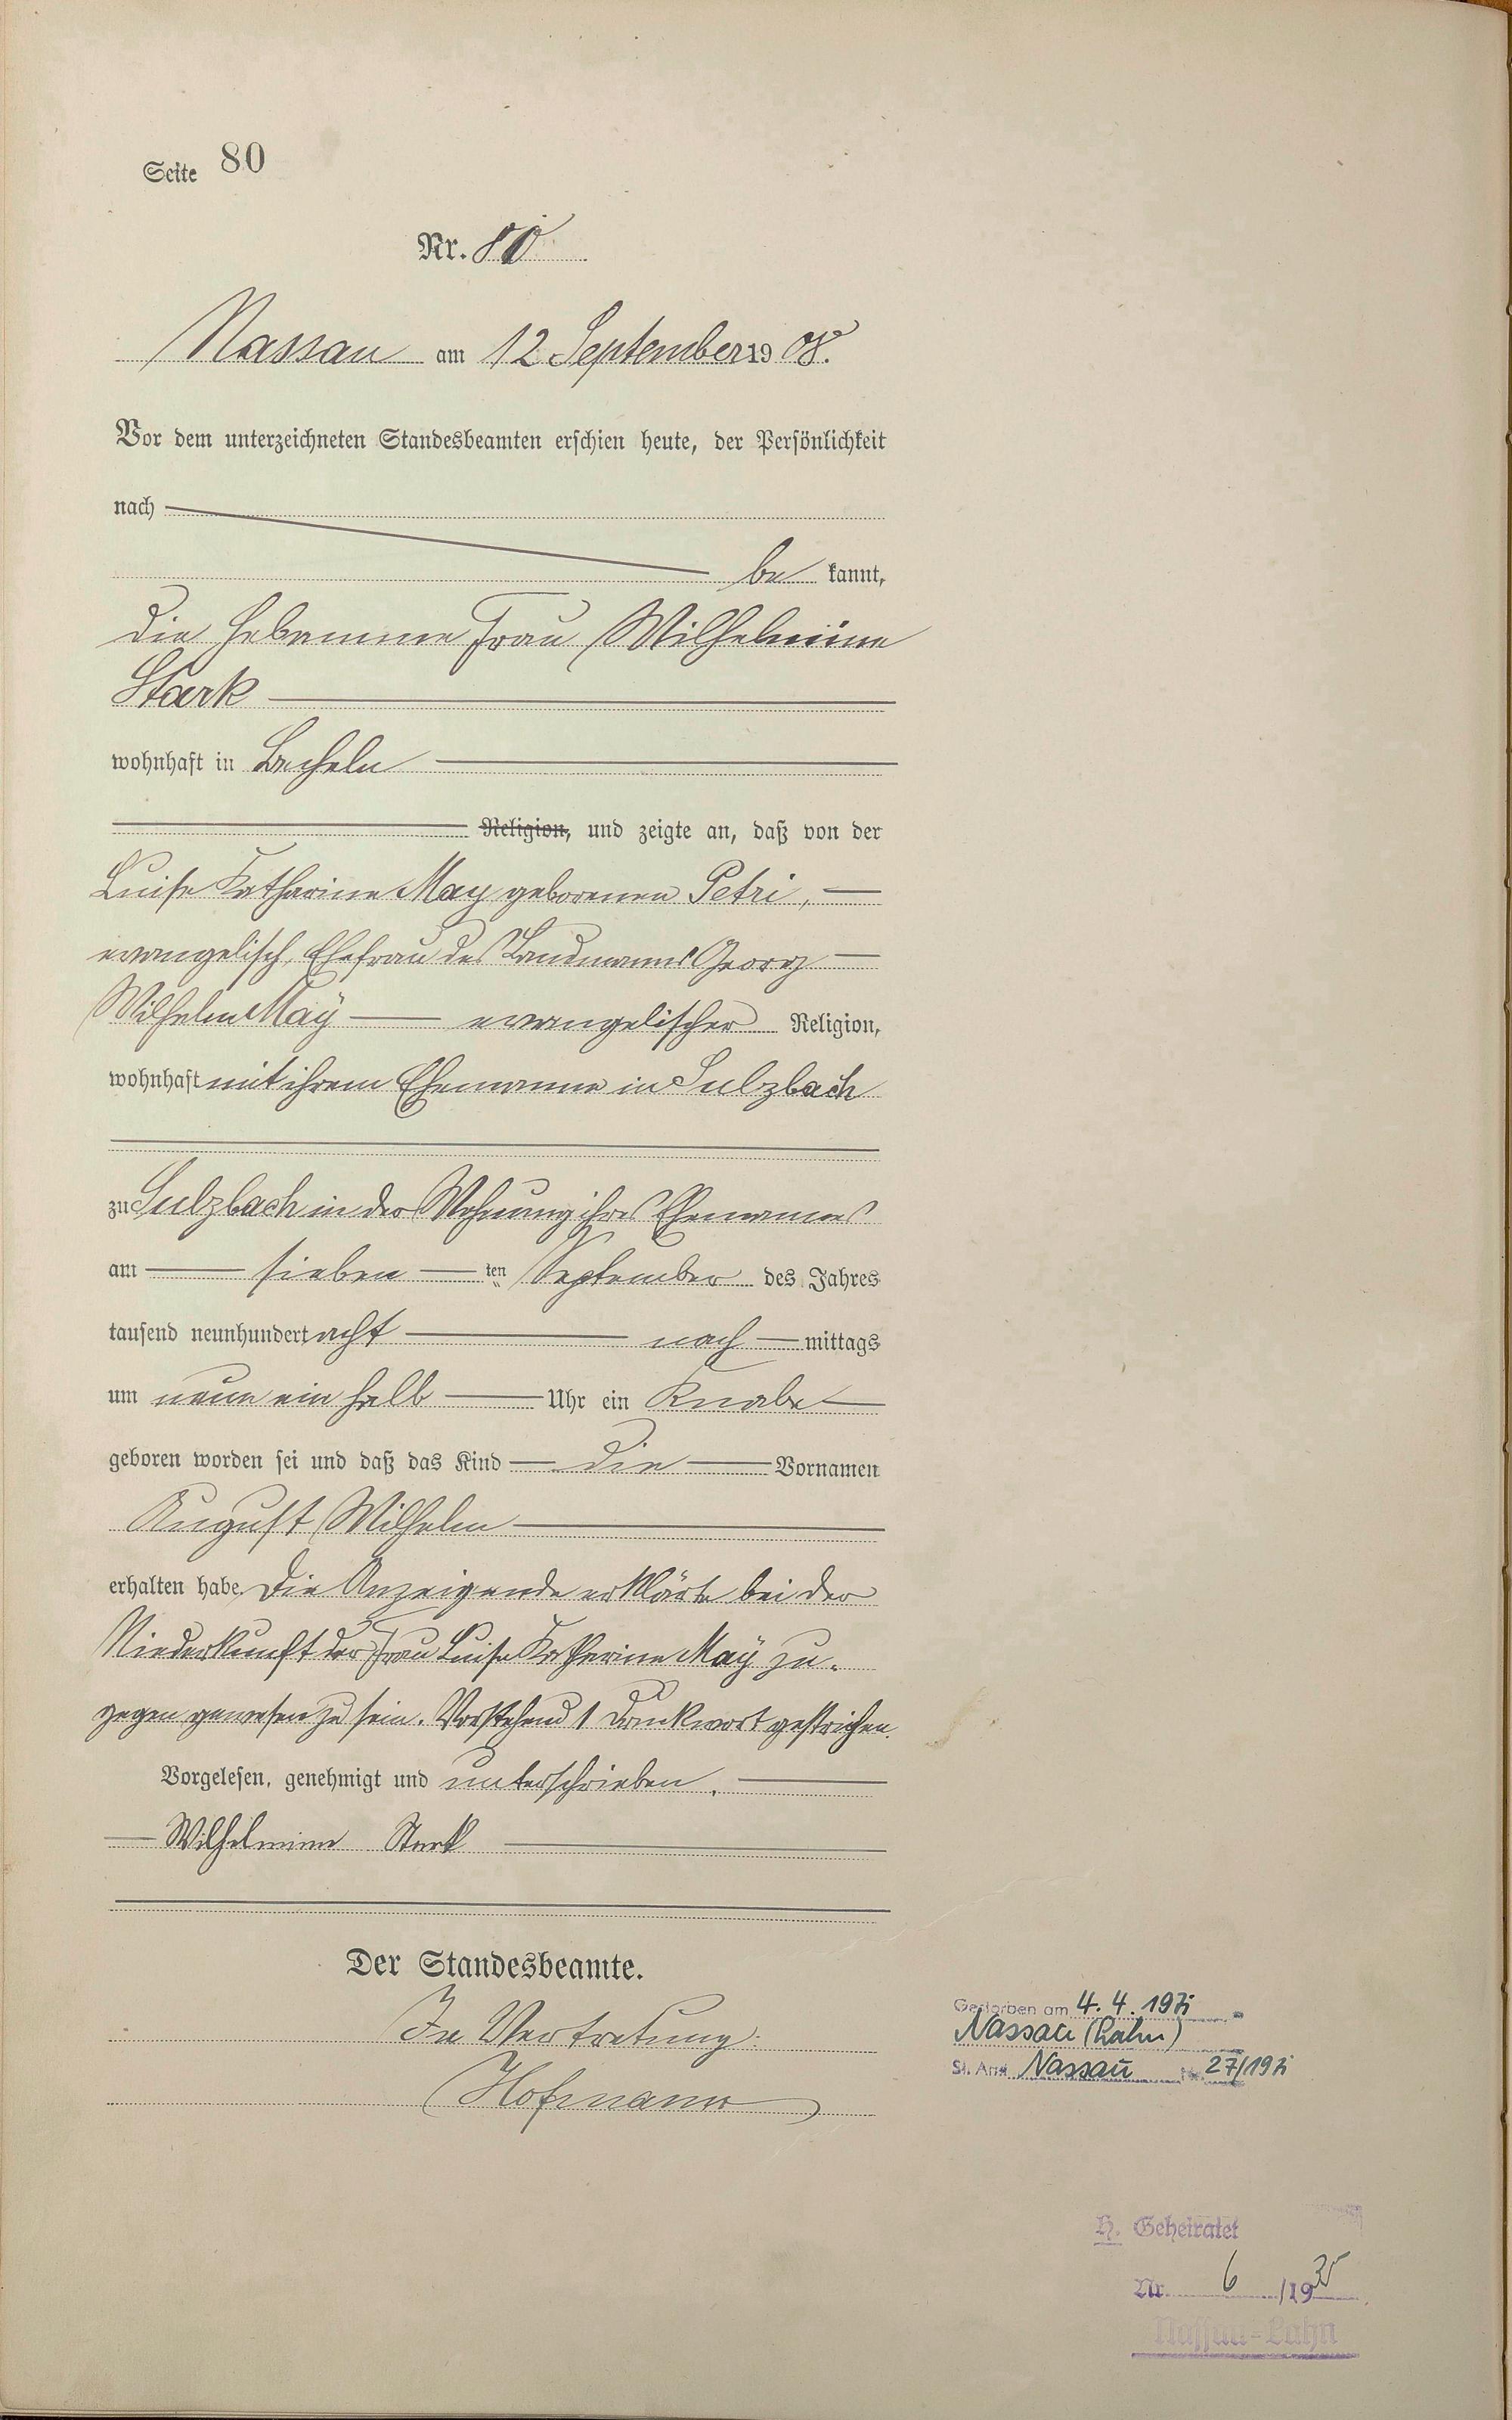 Seite 80
Nr. 80
Nassau am 12 September 1908.
Vor dem unterzeichneten Standesbeamten erschien heute, der Persönlichkeit
nach
be kannt,
die Hebamme Frau Wilhelmine
Stark
wohnhaft in Becheln
Religion, und zeigte an, daß von der
Luise Katharine May geborenen Petri,
evangelisch, Ehefrau des Landmanns Georg
Wilhelm Maÿ evangelischer Religion,
wohnhaft mit ihrem Ehemanne in Sulzbach
zu Sulzbach in der Wohnung ihres Ehemannes
am sieben ten September des Jahres
tausend neunhundert acht nach mittags
um neun ein halb Uhr ein Knabe
geboren worden sei und daß das Kind die Vornamen
August Wilhelm
erhalten habe. Die Anzeigende erklärte bei der
Niederkunft der Frau Luise Katharine Maÿ zu-
gegen gewesen zu sein. Vorstehend 1 Druckwort gestrichen.
Vorgelesen, genehmigt und unterschrieben.
Wilhelmine Stark
Der Standesbeamte.
In Vertretung:
Hofmann
Gestorben am 4.4.
Nassau (Lahn)
St. Amt Nassau Nr.
H. Geheiratet
Nr. 6 /1935
Nassau-Lahn